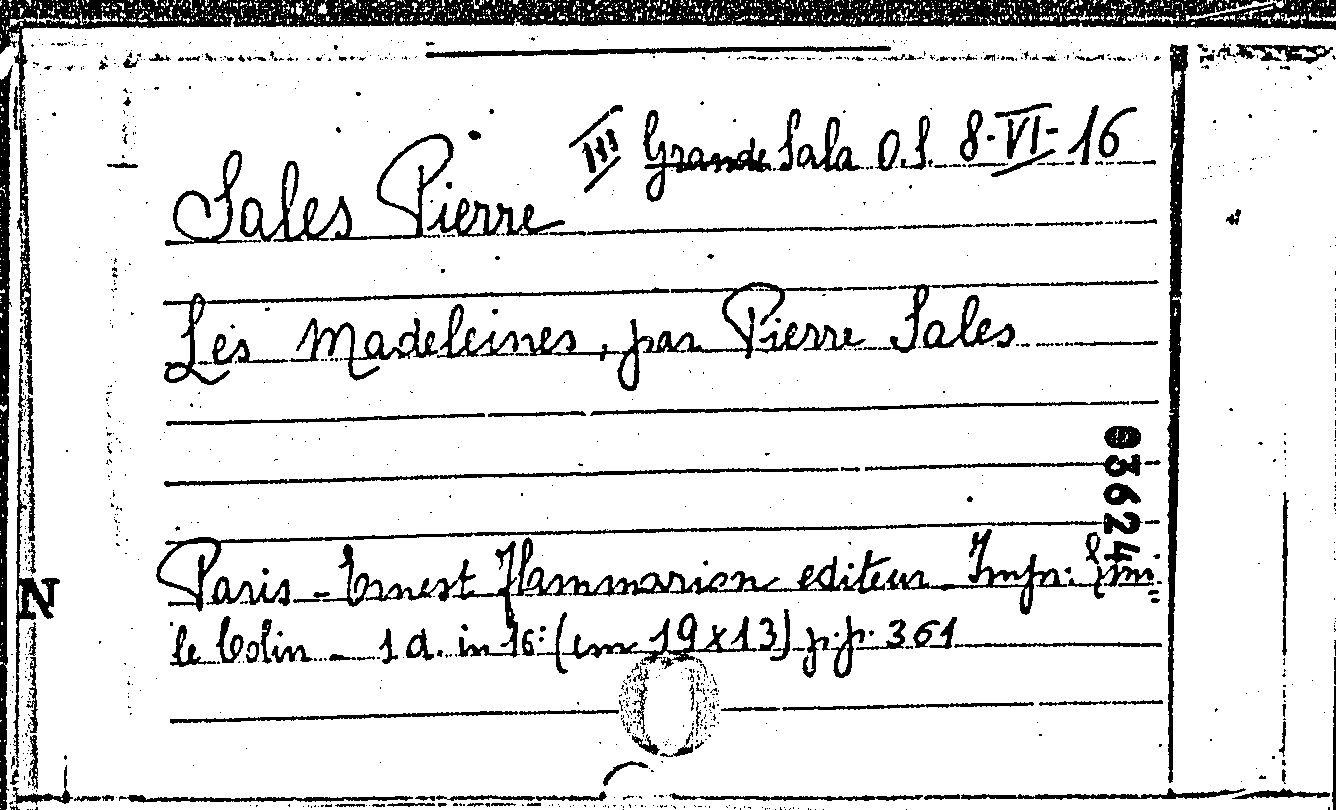 III Grande Sala O.S. 8-VI-16
Sales Pierre
Les Madeleines, par Pierre Sales
03624
Paris - Ernest Flammarion editeur - Impr: Emi=
le Colin - 1 d. in 16: (cm 19x13) p.p. 361
N